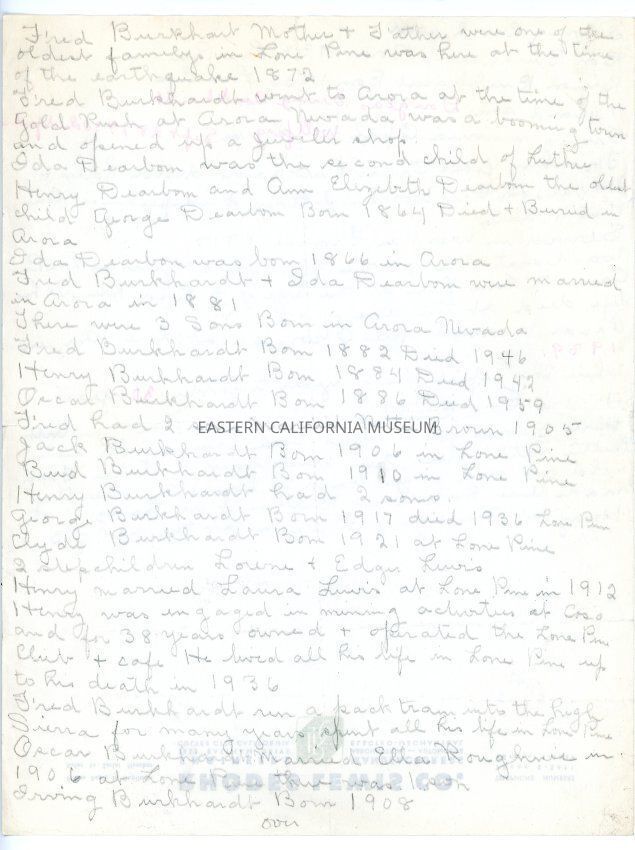 Fred Burkhart Mother + Father were one of the
oldest familys in Lone Pine was here at the time
of the earthquake 1872
Fred Burkhardt went to Arora at the time of the
Gold Rush at Arora Nevada was a booming town
and opened up a jeweler shop.
Ida Dearborn was the second child of Luthur
Henry Dearborn and Ann Elizibeth Dearborn the oldest
child George Dearborn Born 1864 Died + Buried in
Arora
Ida Dearborn was born 1866 in Arora
Fred Burkhardt + Ida Dearborn were married
in Arora in 1881
There were 3 Sons Born in Arora Nevada
Fred Burkhardt Born 1882 Died 1946
Henry Burkhardt Born 1884 Died 1942
Oscar Burkhardt Born 1886 Died 1959
Fred had 2 Brown 1905
EASTERN CALIFORNIA MUSEUM
Jack Burkhardt Born 1906 in Lone Pine
Bud Burkhardt Born 1910 in Lone Pine
Henry Burkhardt had 2 sons.
George Burkhardt Born 1917 died 1936 Lone Pine
Clyde Burkhardt Born 1921 at Lone Pine
2 stepchildren Lorene + Edgar Lewis
Henry married Laura Lewis at Lone Pine in 1912
Henry was in gaged in mining activties at Coso
and for 38 years owned + operated the Lone Pine
Club + cafe He lived all his life in Lone Pine up
to his death in 1936
Fred Burkhardt run a pack train into the high
Sierra for many years spent all his life in Lone Pine
Oscar Burkhardt Married Ella in
1906 at Lone Pine there was 1 son
Irving Burkhardt Born 1908
over